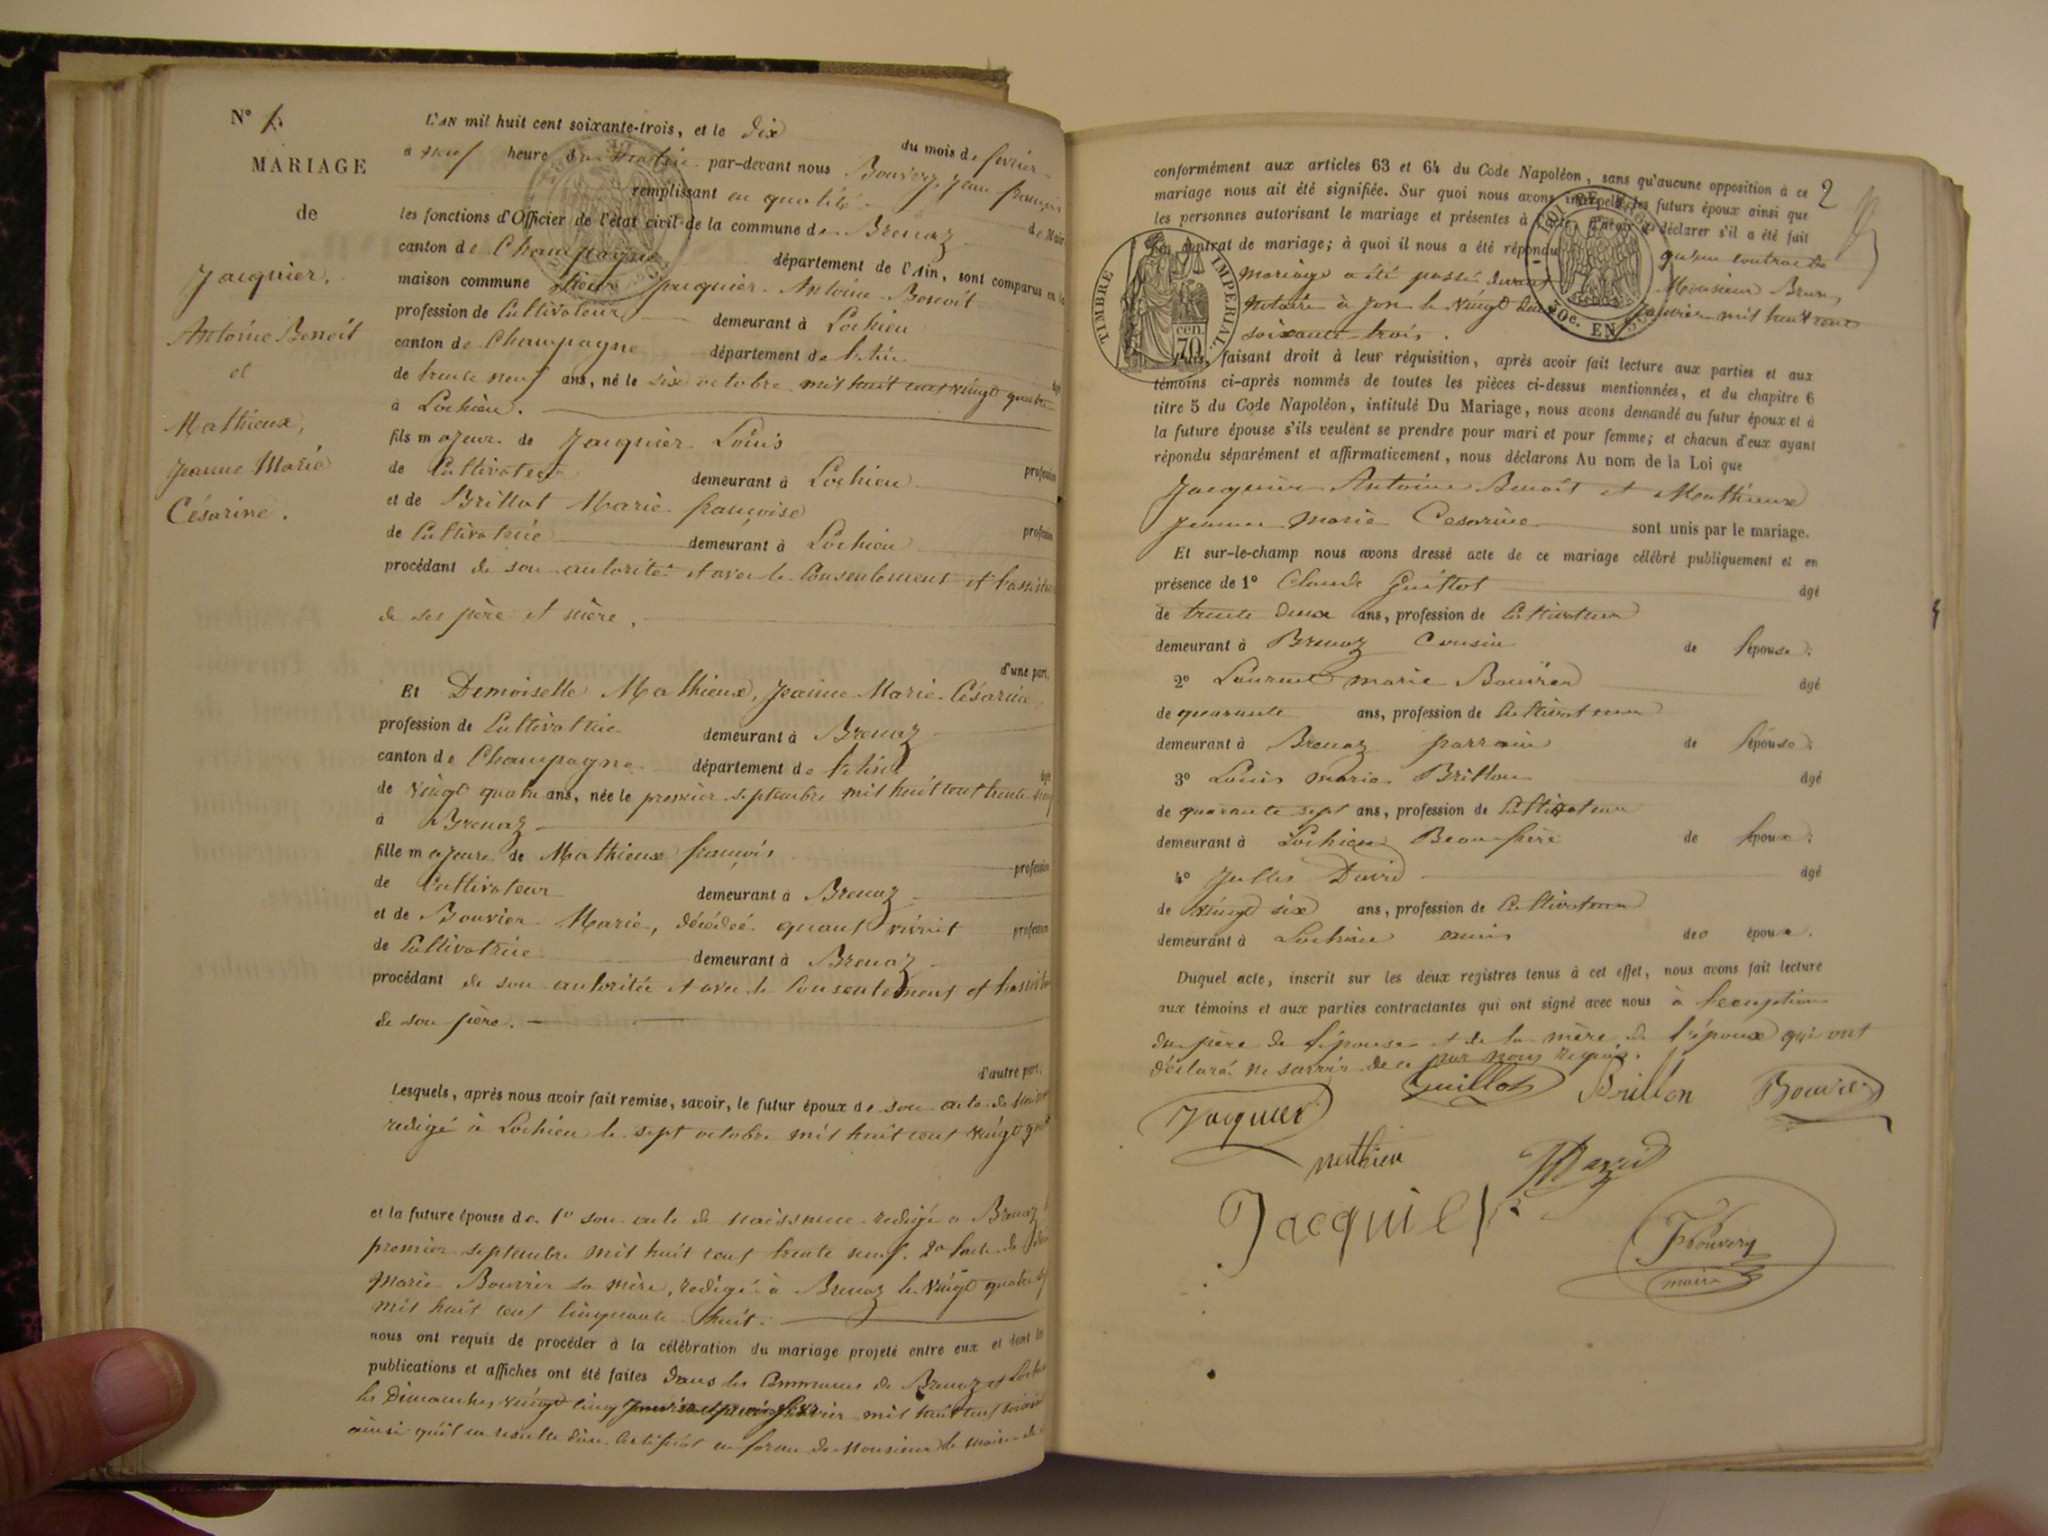 N° 1.
MARIAGE
de
Jacquier,
Antoine Benoit
et
Mathieux,
Jeanne Marie
Césarine.
L'AN mil huit cent soixante-trois, et le dix du mois de fevrier
a neuf heure du matin par-devant nous Bouvery, Jean françois
remplissant en qualité de Maire
les fonctions d'Officier de l'état civil de la commune de Brenaz
canton de Champagne département de l'Ain, sont comparus en la
maison commune Jacquier Antoine Benoit
profession de Cultivateur demeurant à Lochieu
canton de Champagne département de l'Ain
de trente neuf ans, né le six octobre mil huit cent vingt quatre
à Lochieu.
fils majeur de Jacquier Louis profession
de Cultivateur demeurant à Lochieu
et de Brillat Marie françoise profession
de Cultivatrice demeurant à Lochieu
procédant de son autorité et avec le Consentement et l'assistance
de ses père et mère.
d'une part,
Et Demoiselle Mathieux, Jeanne Marie Césarine,
profession de Cultivatrice demeurant à Brenaz
canton de Champagne département de l'Ain
de vingt quatre ans, née le premier septembre mil huit cent trente neuf
à Brenaz
fille majeure de Mathieux françois profession
de Cultivateur demeurant à Brenaz
et de Bouvier Marie, décédée quant vivait profession
de Cultivatrice demeurant à Brenaz
procédant de son autoritée et avec le Consentement et l'assistance
de son père.
d'autre part;
Lesquels, après nous avoir fait remise, savoir, le futur époux de son acte de
redigé à Lochieu le sept octobre mil huit cent vingt
et la future épouse de 1° son acte de naissance redigé a Brenaz
premier septembre mil huit cent trente neuf. 2° l'acte de
Marie Bouvier sa mère, redigé à Brenaz le vingt quatre
mil huit cent cinquante huit.
nous ont requis de procéder à la célébration du mariage projeté entre eux et dont les
publications et affiches ont été faites dans les Communes de Brenaz et
les Dimanches vingt cinq fevrier mil huit cent
ainsi qu'il en resulte d'un Certificat en forme de Monsieur le Maire de
2
conformément aux articles 63 et 64 du Code Napoléon, sans qu'aucune opposition à ce
mariage nous ait été signifiée. Sur quoi nous avons interpelé les futurs époux ainsi que
les personnes autorisant le mariage et présentes à l'acte, d'avoir à déclarer s'il a été fait
un contrat de mariage; à quoi il nous a été répondu qu'un contrat de
mariage a été passé devant Monsieur Brun,
Notaire à le vingt deux Janvier mil huit cent
soixante trois.
TIMBRE IMPERIAL
70 cen.
30c. EN SUS
Puis, faisant droit à leur réquisition, après avoir fait lecture aux parties et aux
témoins ci-après nommés de toutes les pièces ci-dessus mentionnées, et du chapitre 6
titre 5 du Code Napoléon, intitulé Du Mariage, nous avons demandé au futur époux et à
la future épouse s'ils veulent se prendre pour mari et pour femme; et chacun d'eux ayant
répondu séparément et affirmativement, nous déclarons Au nom de la Loi que
Jacquier Antoine Benoît et Mathieux
Jeanne Marie Cesarine sont unis par le mariage.
Et sur-le-champ nous avons dressé acte de ce mariage célébré publiquement et en
présence de 1° Claude Guillot âgé
de trente deux ans, profession de Cultivateur
demeurant à Brenaz Cousin de l'épouse;
2° Laurent marie Bouvier âgé
de quarante ans, profession de Cultivateur
demeurant à Brenaz parrain de l'épouse;
3° Louis marie Brillon âgé
de quarante sept ans, profession de Cultivateur
demeurant à Lochieu Beau-frère de l'époux;
4° Jules David âgé
de vingt six ans, profession de Cultivateur
demeurant à Lochieu amis des époux.
Duquel acte, inscrit sur les deux registres tenus à cet effet, nous avons fait lecture
aux témoins et aux parties contractantes qui ont signé avec nous à l'exception
du père de l'épouse et de la mère de l'époux qui ont
déclaré ne savoir de ce par nous requis.
Guillot Brillon Bouvier
Jacquier
mathieu David
Jacquier
Bouvery
maire